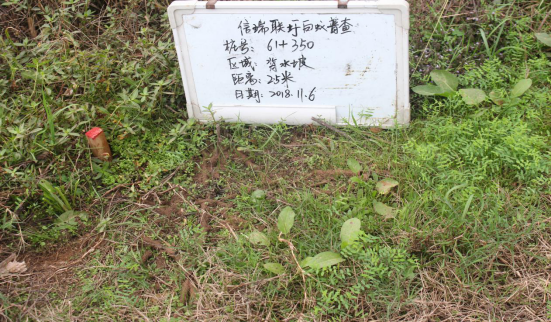 信瑞联圩白蚁普查
桩号: 61+350
区域: 背水坡
距离: 25米
日期: 2018.11.6